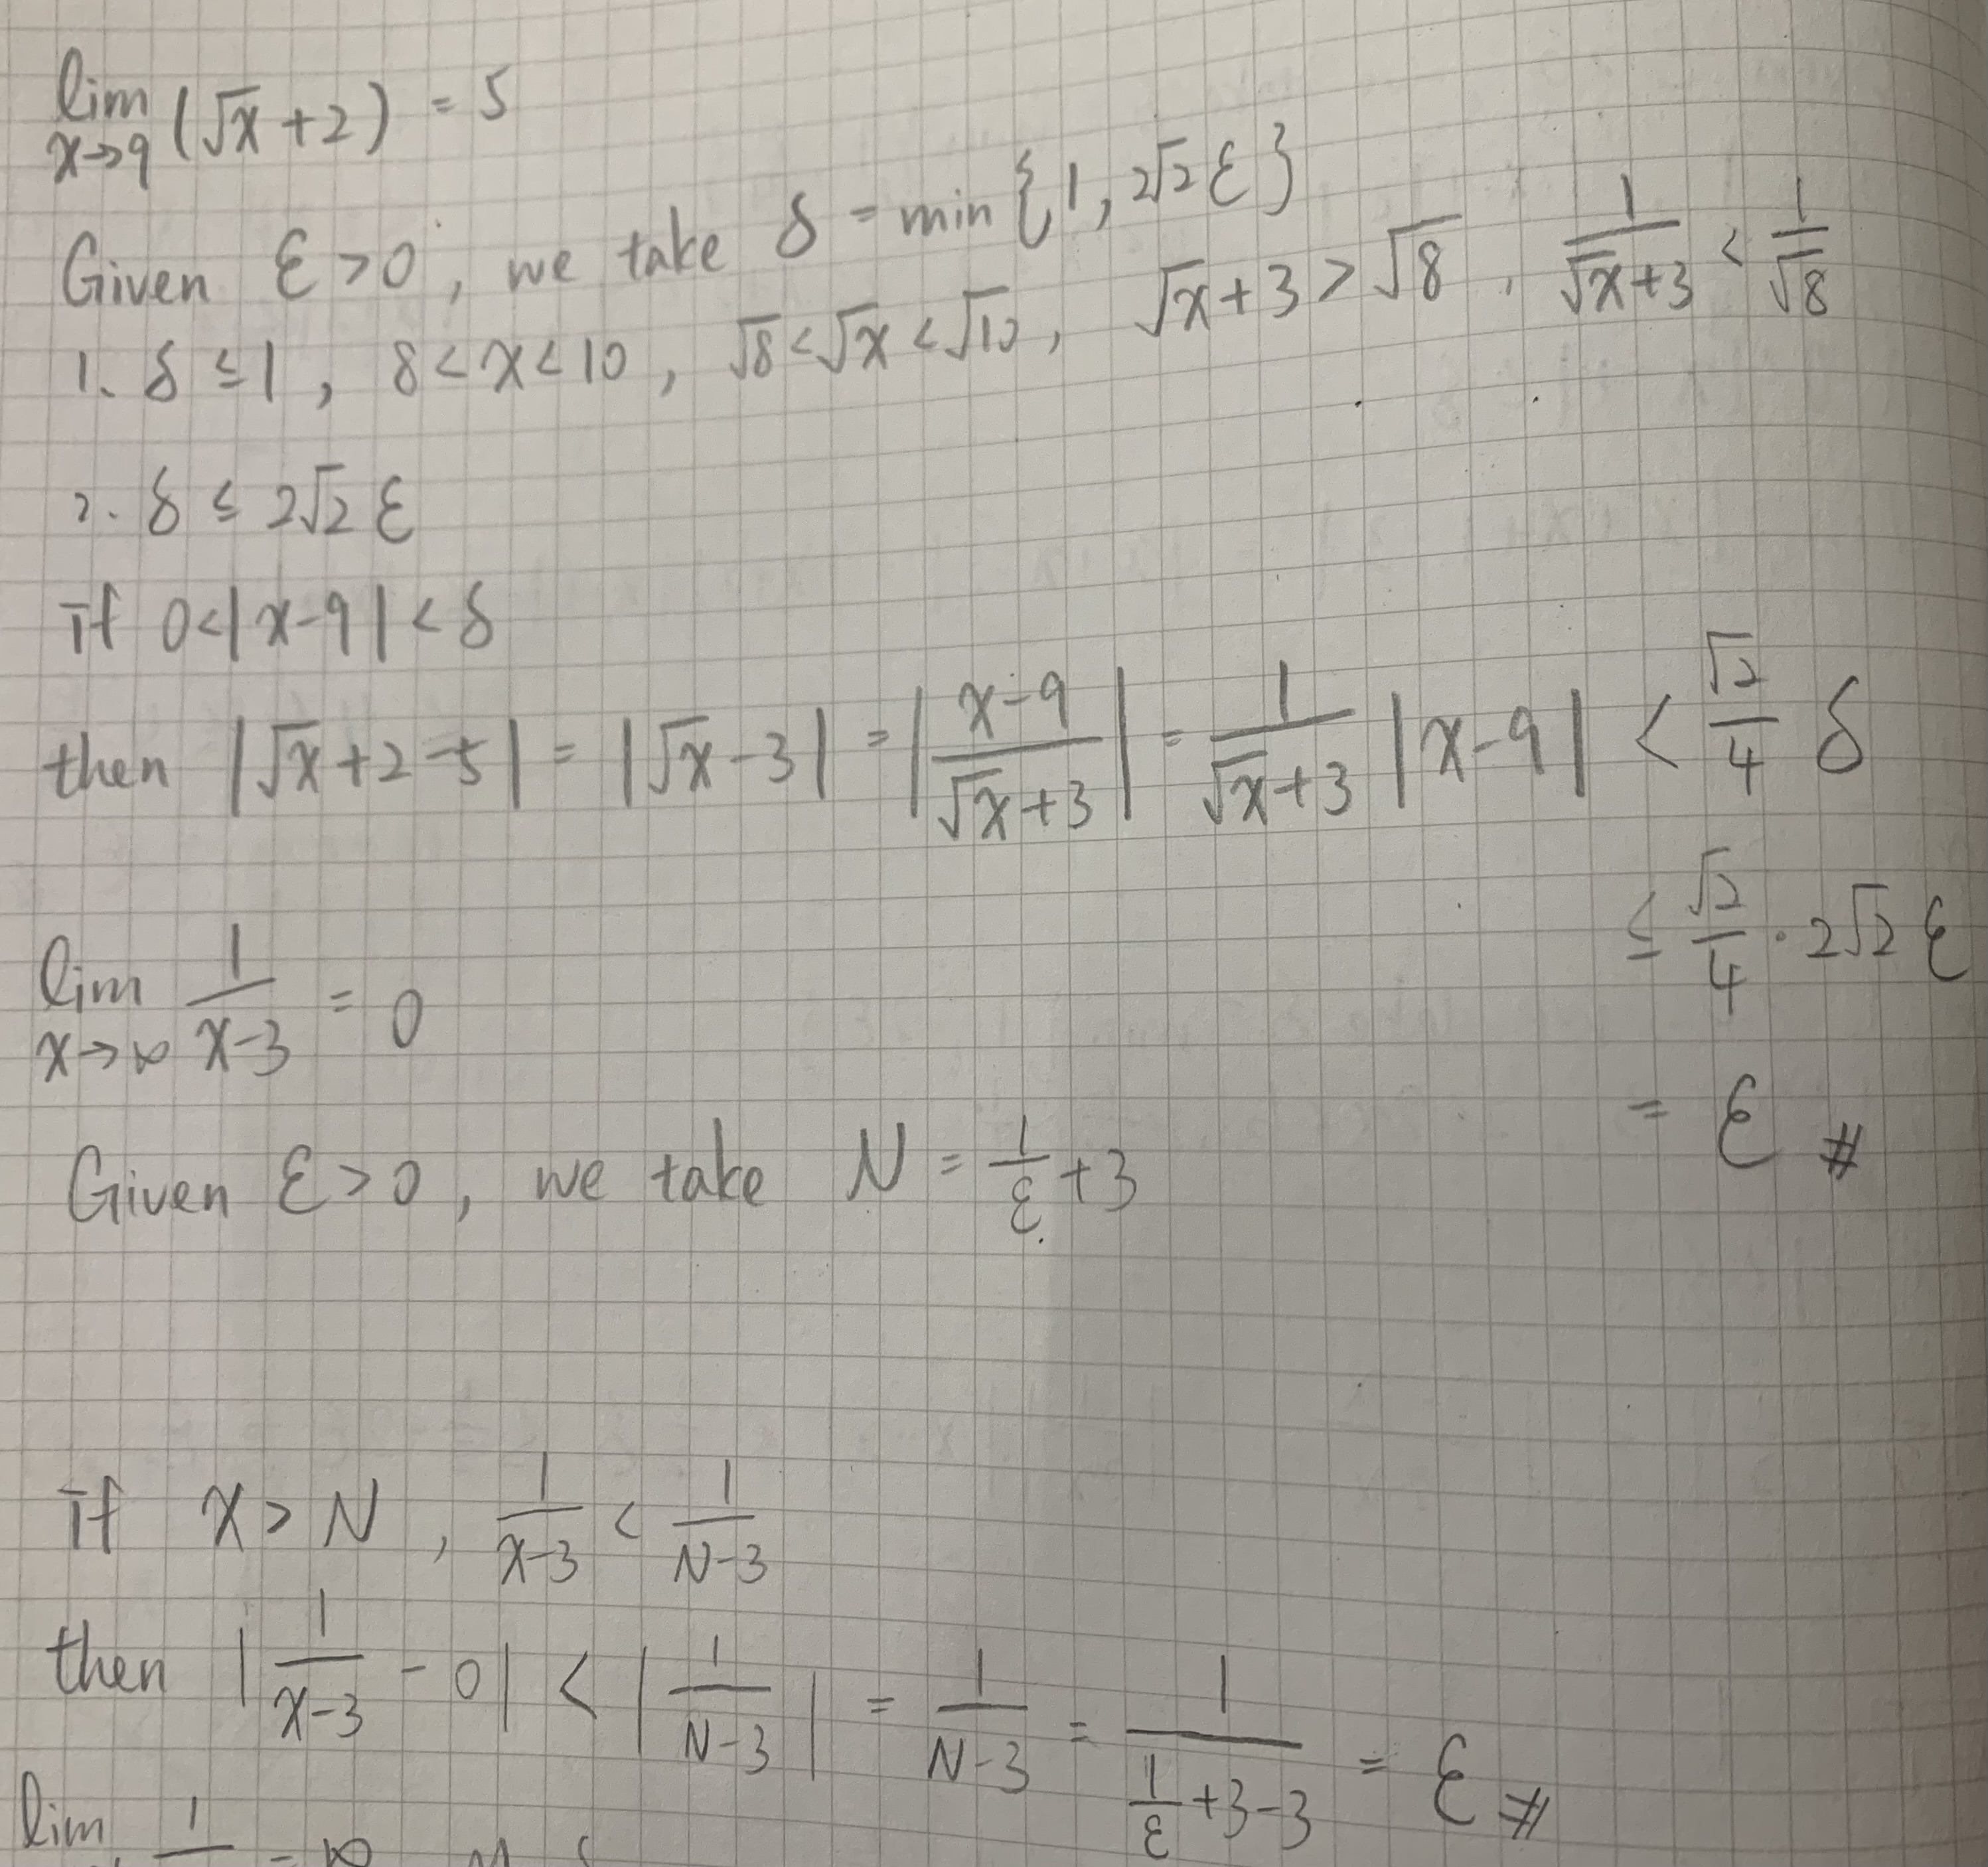 lim x→9 (√x + 2) = 5
Given ε > 0, we take δ = min {1, 2√2 ε}
1. δ ≤ 1, 8 < x < 10, √8 < √x < √10, √x + 3 > √8, 1/(√x + 3) < 1/√8
2. δ ≤ 2√2 ε
if 0 < |x - 9| < δ
then |√x + 2 - 5| = |√x - 3| = |(x - 9)/(√x + 3)| = 1/(√x + 3) |x - 9| < √2/4 δ
≤ √2/4 · 2√2 ε
= ε #
lim x→∞ 1/(x - 3) = 0
Given ε > 0, we take N = 1/ε + 3
if x > N, 1/(x - 3) < 1/(N - 3)
then |1/(x - 3) - 0| < |1/(N - 3)| = 1/(N - 3) = 1/(1/ε + 3 - 3) = ε #
lim 1 = ∞